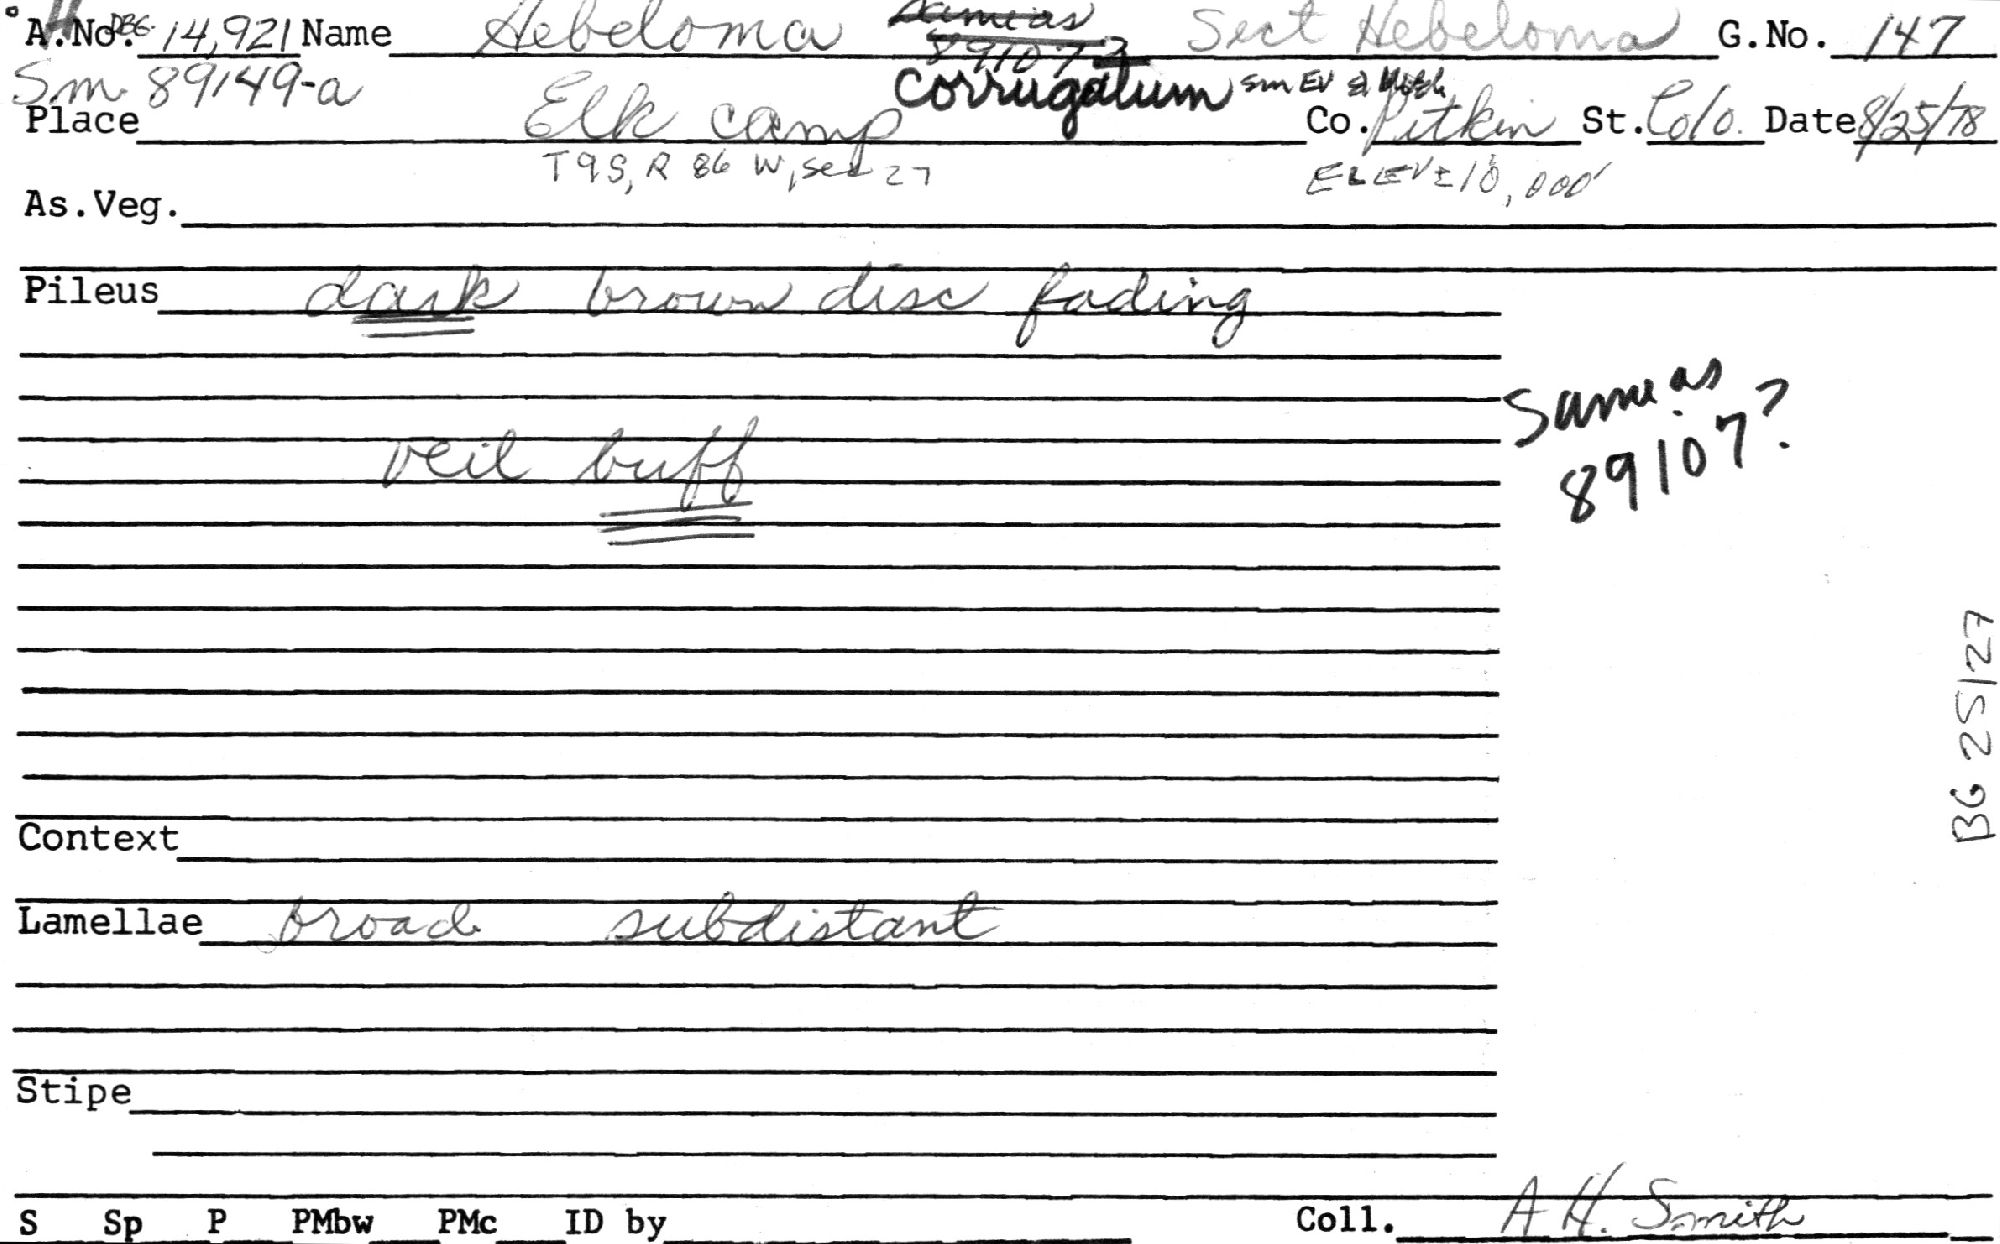 A.No. DBG 14,921 Name Hebeloma same as 89107? Sect Hebeloma G.No. 147
Sm 89149-a corrugatum Sm Ev &
Place Elk camp Co. Pitkin St. Colo. Date 8/25/78
T9S, R 86 W, sec 27 ELEV ± 10,000'
As.Veg.
Pileus dark brown disc fading
Same as
89107?
veil buff
BG 25/27
Context
Lamellae broad subdistant
Stipe
S Sp P PMbw PMc ID by Coll. A H. Smith